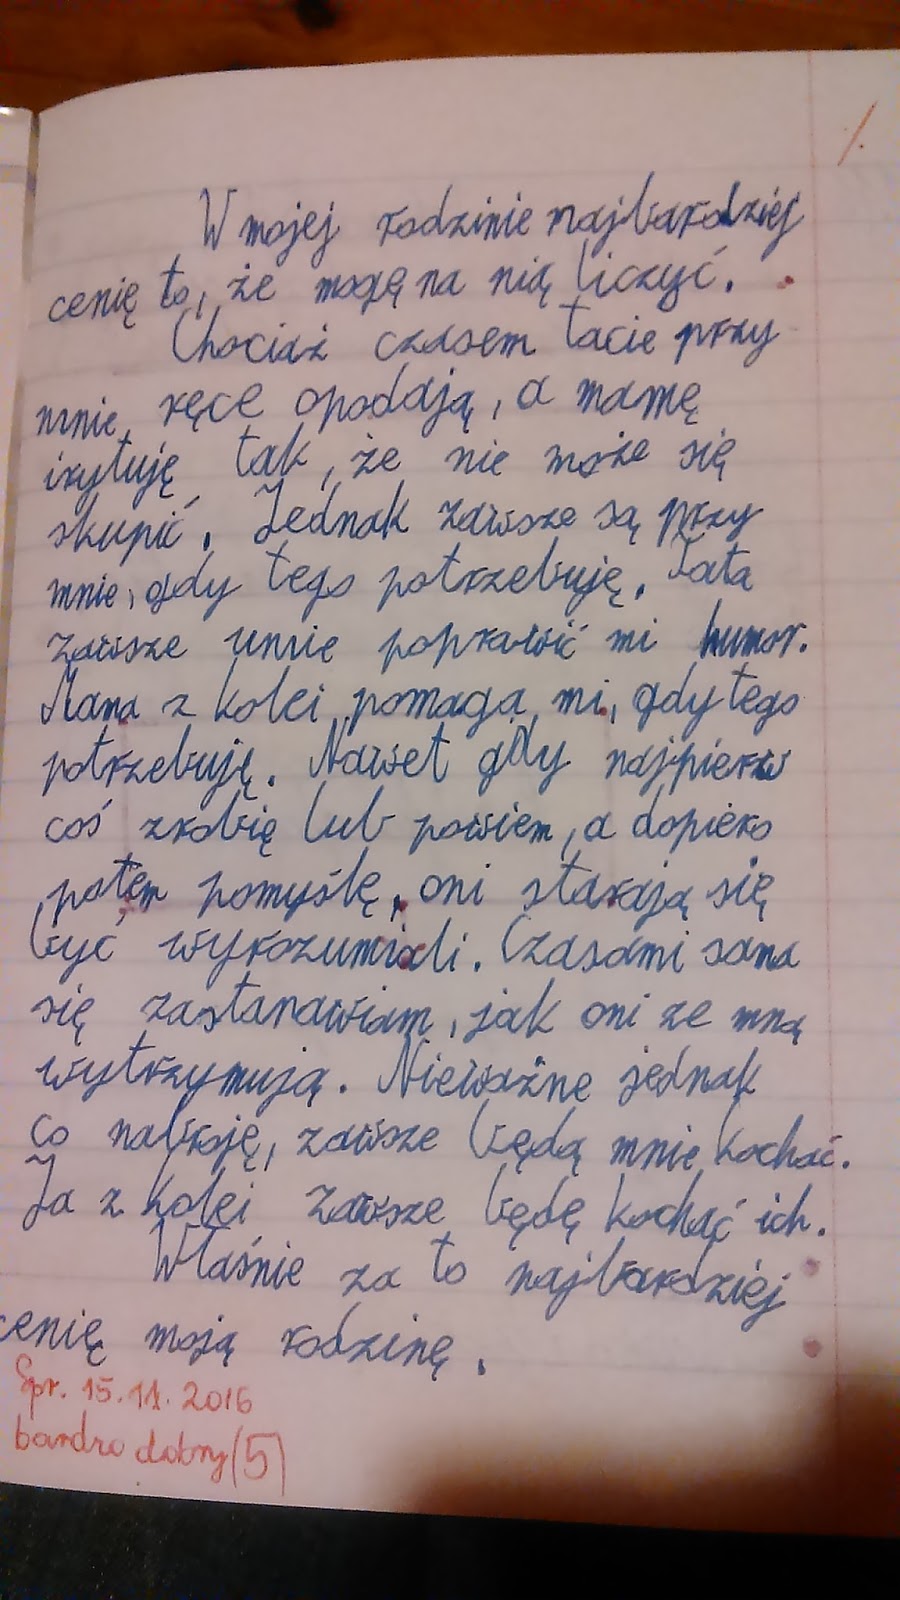 W mojej rodzinie najbardziej
cenię to, że mogę na nią liczyć.
Chociaż czasem tacie przy
mnie ręce opodają, a mamę
irytuję tak, że nie może się
skupić. Jednak zawsze są przy
mnie, gdy tego potrzebuję. Tata
zawsze umie poprawić mi humor.
Mama z kolei pomaga mi, gdy tego
potrzebuję. Nawet gdy najpierw
coś zrobię lub powiem, a dopiero
potem pomyślę, oni starają się
być wyrozumiali. Czasami sama
się zastanawiam, jak oni ze mną
wytrzymują. Nieważne jednak
co nabroję, zawsze będą mnie kochać.
Ja z kolei zawsze będę kochać ich.
Właśnie za to najbardziej
cenię moją rodzinę.
Spr. 15.11.2016
bardzo dobry (5)